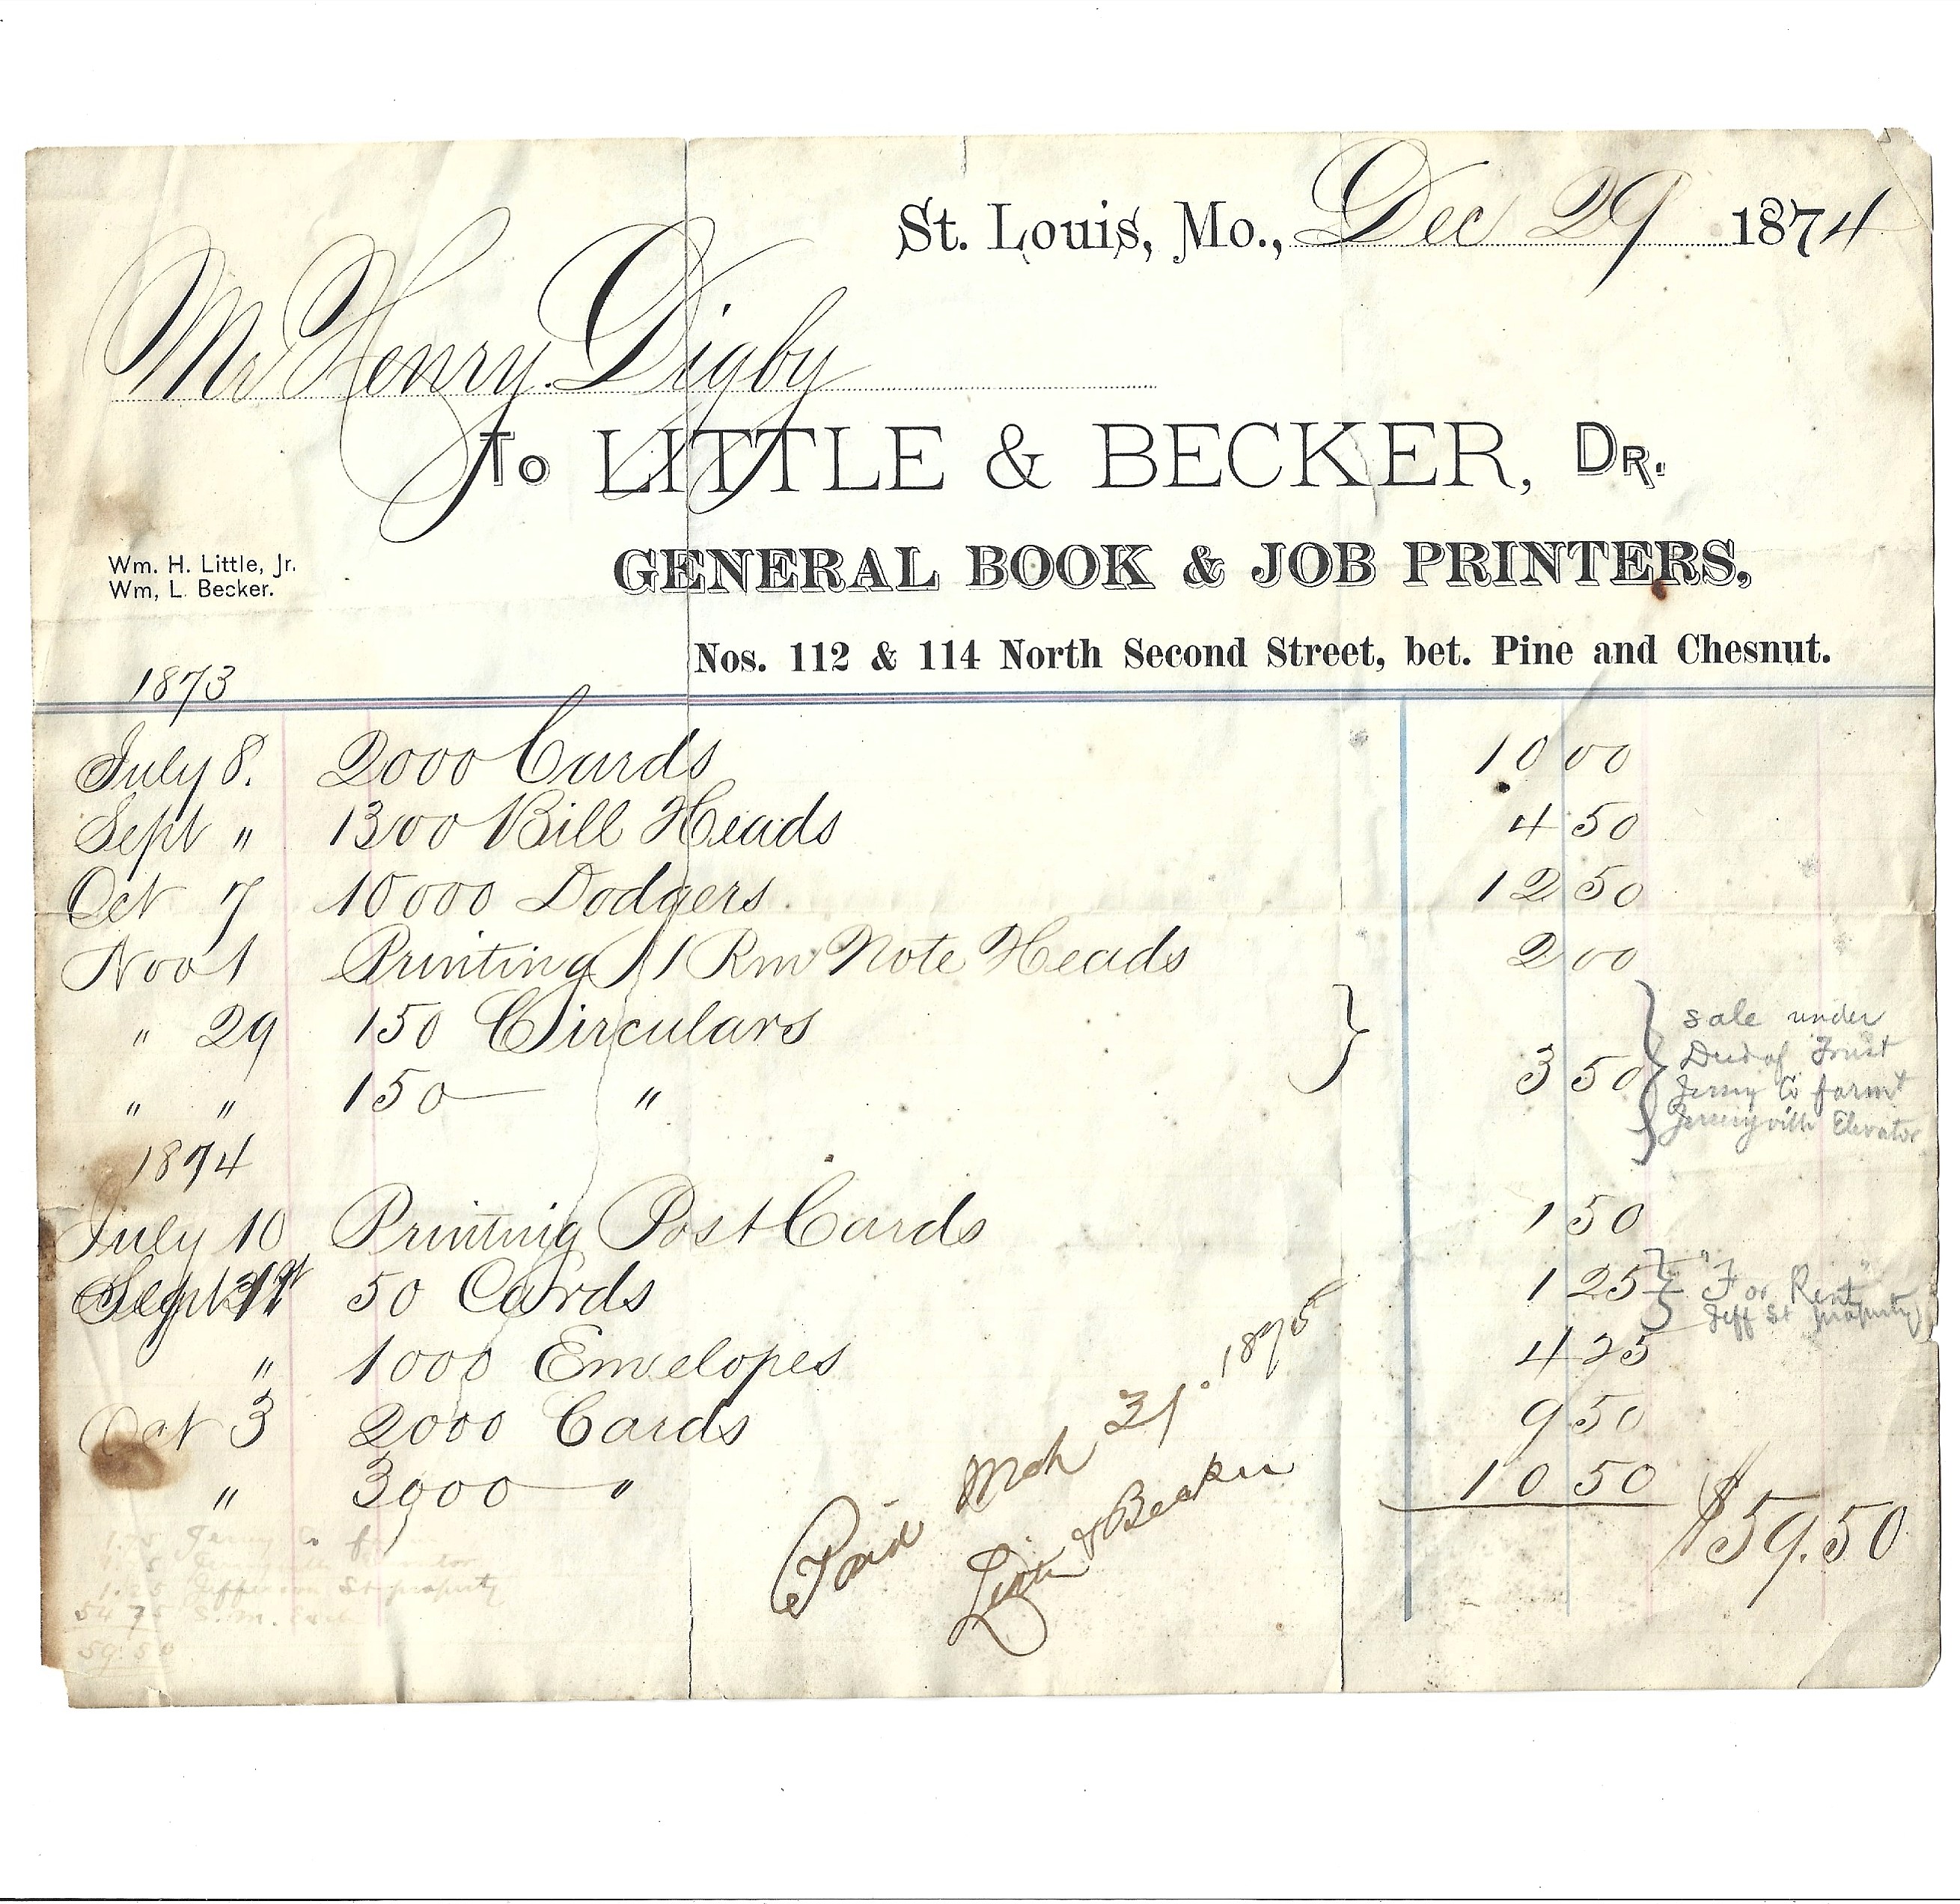 St. Louis, Mo., Dec 29 1874
Mr Henry Digby
To LITTLE & BECKER, Dr.
Wm. H. Little, Jr.
Wm, L. Becker.
GENERAL BOOK & JOB PRINTERS,
Nos. 112 & 114 North Second Street, bet. Pine and Chesnut.
1873
July 8. 2000 Cards 10 00
Sept " 1300 Bill Heads 4 50
Oct 7 10000 Dodgers. 12 50
Nov 1 Printing 1 Rm Note Heads 2 00
" 29 150 Circulars }
" " 150 — " 3 50 }
sale under
Deed of Trust
Jersey Co farm &
Jerseyville Elevator
1874
July 10 Printing Post Cards 1 50
Sept 50 Cards 1 25 } "For Rent"
Jeff St property
" 1000 Envelopes 4 25
Oct 3 2000 Cards 9 50
" 3000 — " 10 50
$59.50
Paid Mch 31. 1875
Little & Becker
1.75 Jersey Co farm
1.75 Jerseyville Elevator
1.25 Jefferson St property
54 75 S. M.
59.50